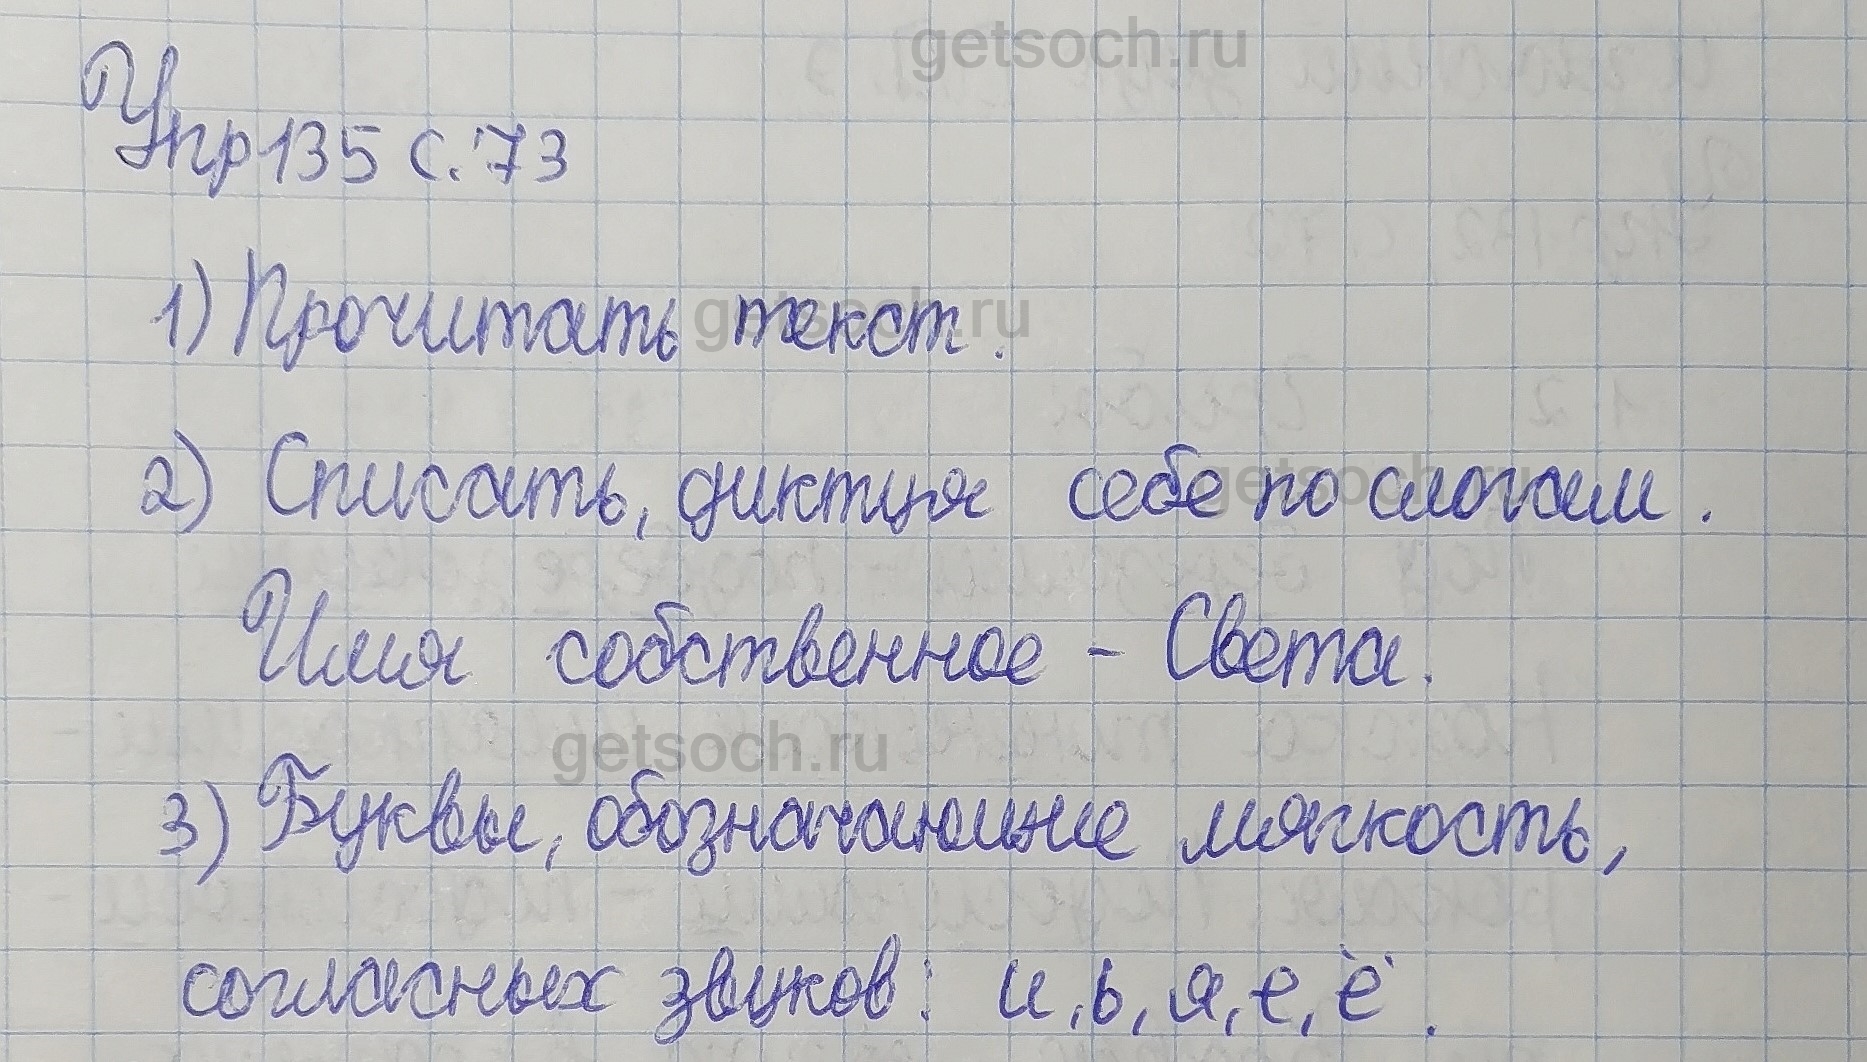 getsoch.ru
Упр 135 с. 73
1) Прочитать текст.
getsoch.ru
2) Списать, диктуя себе по слогам.
getsoch.ru
Имя собственное - Света.
getsoch.ru
3) Буквы, обозначающие мягкость,
согласных звуков: и, ь, я, е, ё.